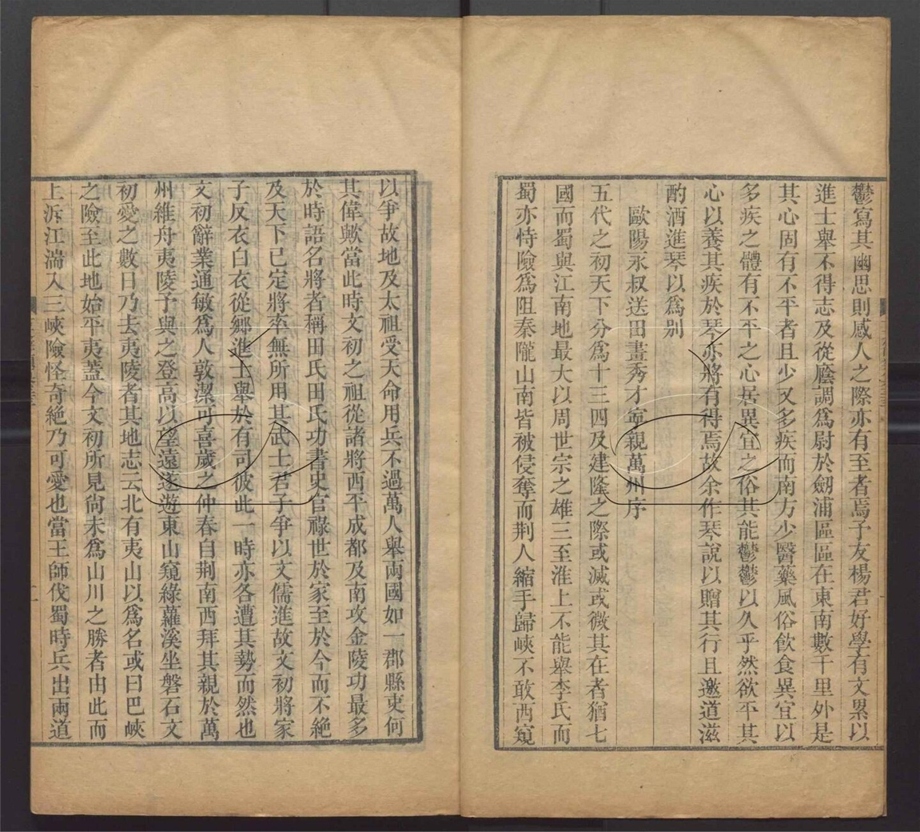 鬱寫其幽思則感人之際亦有至者焉予友楊君好學有文累以
進士舉不得志及從廕調為尉於劒浦區區在東南數千里外是
其心固有不平者且少又多疾而南方少醫藥風俗飲食異宜以
多疾之體有不平之心居異宜之俗其能鬱鬱以久乎然欲平其
心以養其疾於琴亦將有得焉故余作琴說以贈其行且邀道滋
酌酒進琴以為别
歐陽永叔送田畫秀才寧親萬州序
五代之初天下分為十三四及建隆之際或滅或微其在者猶七
國而蜀與江南地最大以周世宗之雄三至淮上不能舉李氏而
蜀亦恃險為阻秦隴山南皆被侵奪而荆人縮手歸峽不敢西窺
以爭故地及太祖受天命用兵不過萬人舉兩國如一郡縣吏何
其偉歟當此時文初之祖從諸將西平成都及南攻金陵功最多
於時語名將者稱田氏田氏功書史官祿世於家至於今而不絶
及天下已定將率無所用其武士君子爭以文儒進故文初將家
子反衣白衣從鄉進士舉於有司彼此一時亦各遭其勢而然也
文初辭業通敏為人敦潔可喜歲之仲春自荆南西拜其親於萬
州維舟夷陵予與之登高以望遠遂遊東山窺綠蘿溪坐磐石文
初愛之數日乃去夷陵者其地志云北有夷山以為名或曰巴峽
之險至此地始平夷蓋今文初所見尚未為山川之勝者由此而
上泝江湍入三峽險怪奇絶乃可愛也當王師伐蜀時兵出兩道